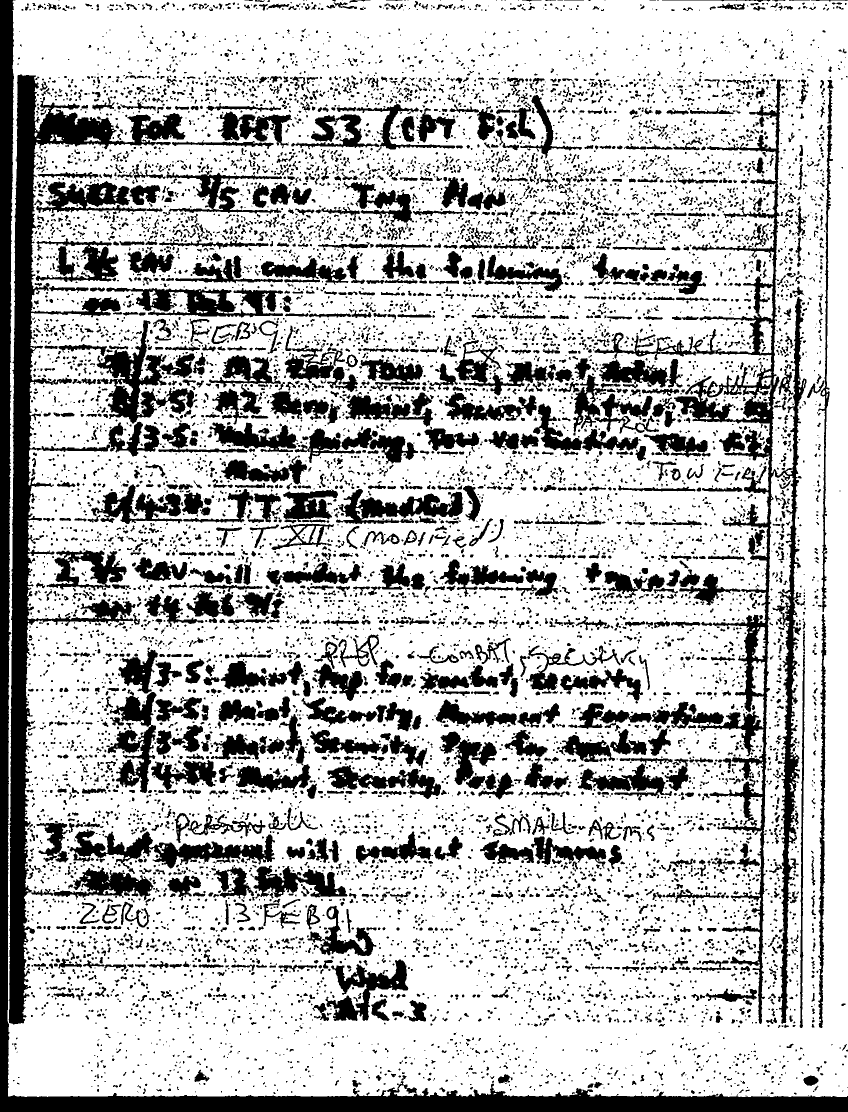 MEMO FOR RFCT S3 (CPT Fish)
SUBJECT: 3/5 CAV Tng Plan
1. 3/5 CAV will conduct the following training
on 13 Feb 91:
13 FEB 91
ZERO LFX REFUEL
A/3-5: M2 Zero, TOW LFX, Maint, Refuel
TOW FIRING
B/3-5: M2 Zero, Maint, Security Patrols, TOW
PATROL
C/3-5: Vehicle Painting, TOW verification, TOW
Maint
TOW FIRING
C/4-34: TT XII (Modified)
TT XII (MODIFIEd)
2. 3/5 CAV will conduct the following training
on 14 Feb 91:
PREP COMBAT, SECURITY
A/3-5: Maint, Prep for combat, security
B/3-5: Maint, Security, Movement Formations
C/3-5: Maint, Security, Prep for Combat
C/4-34: Maint, Security, Prep for Combat
PERSONELL SMALL ARMS
3. Select personnel will conduct small arms
zero on 13 Feb 91.
ZERO 13 FEB 91
Wood
A/S-3